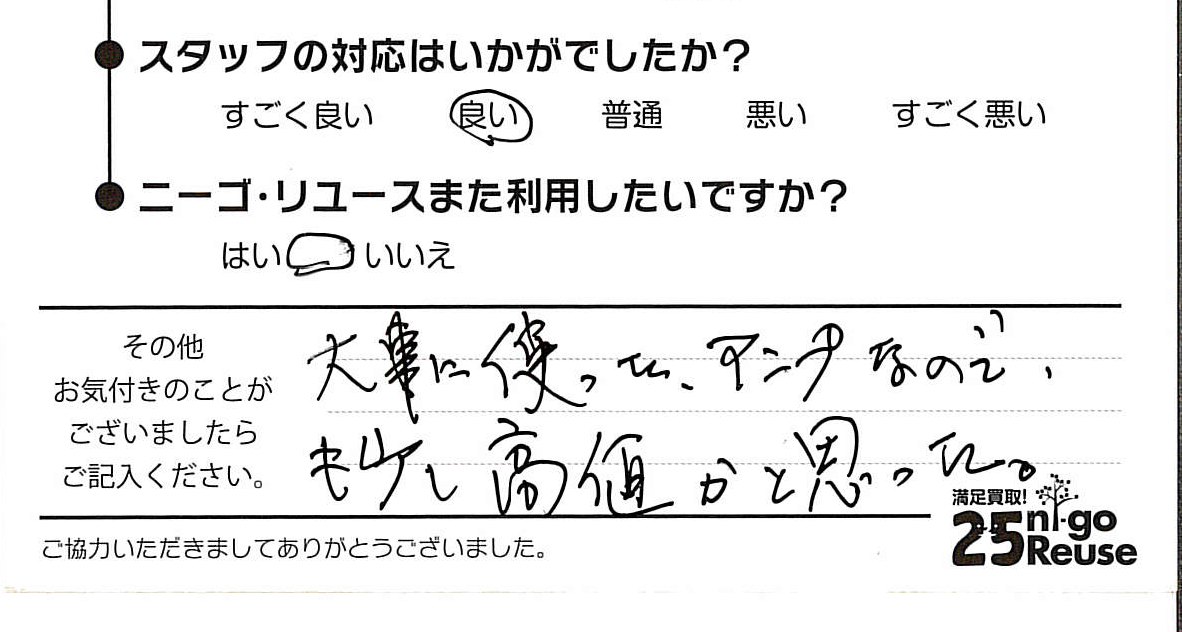 スタッフの対応はいかがでしたか？
すごく良い 良い 普通 悪い すごく悪い
ニーゴ・リユースまた利用したいですか？
はい いいえ
その他
お気付きのことが
ございましたら
ご記入ください。
大事に使ってた、アンプなので、
も少し高値かと思った。
満足買取!
25 ni-go
Reuse
ご協力いただきましてありがとうございました。